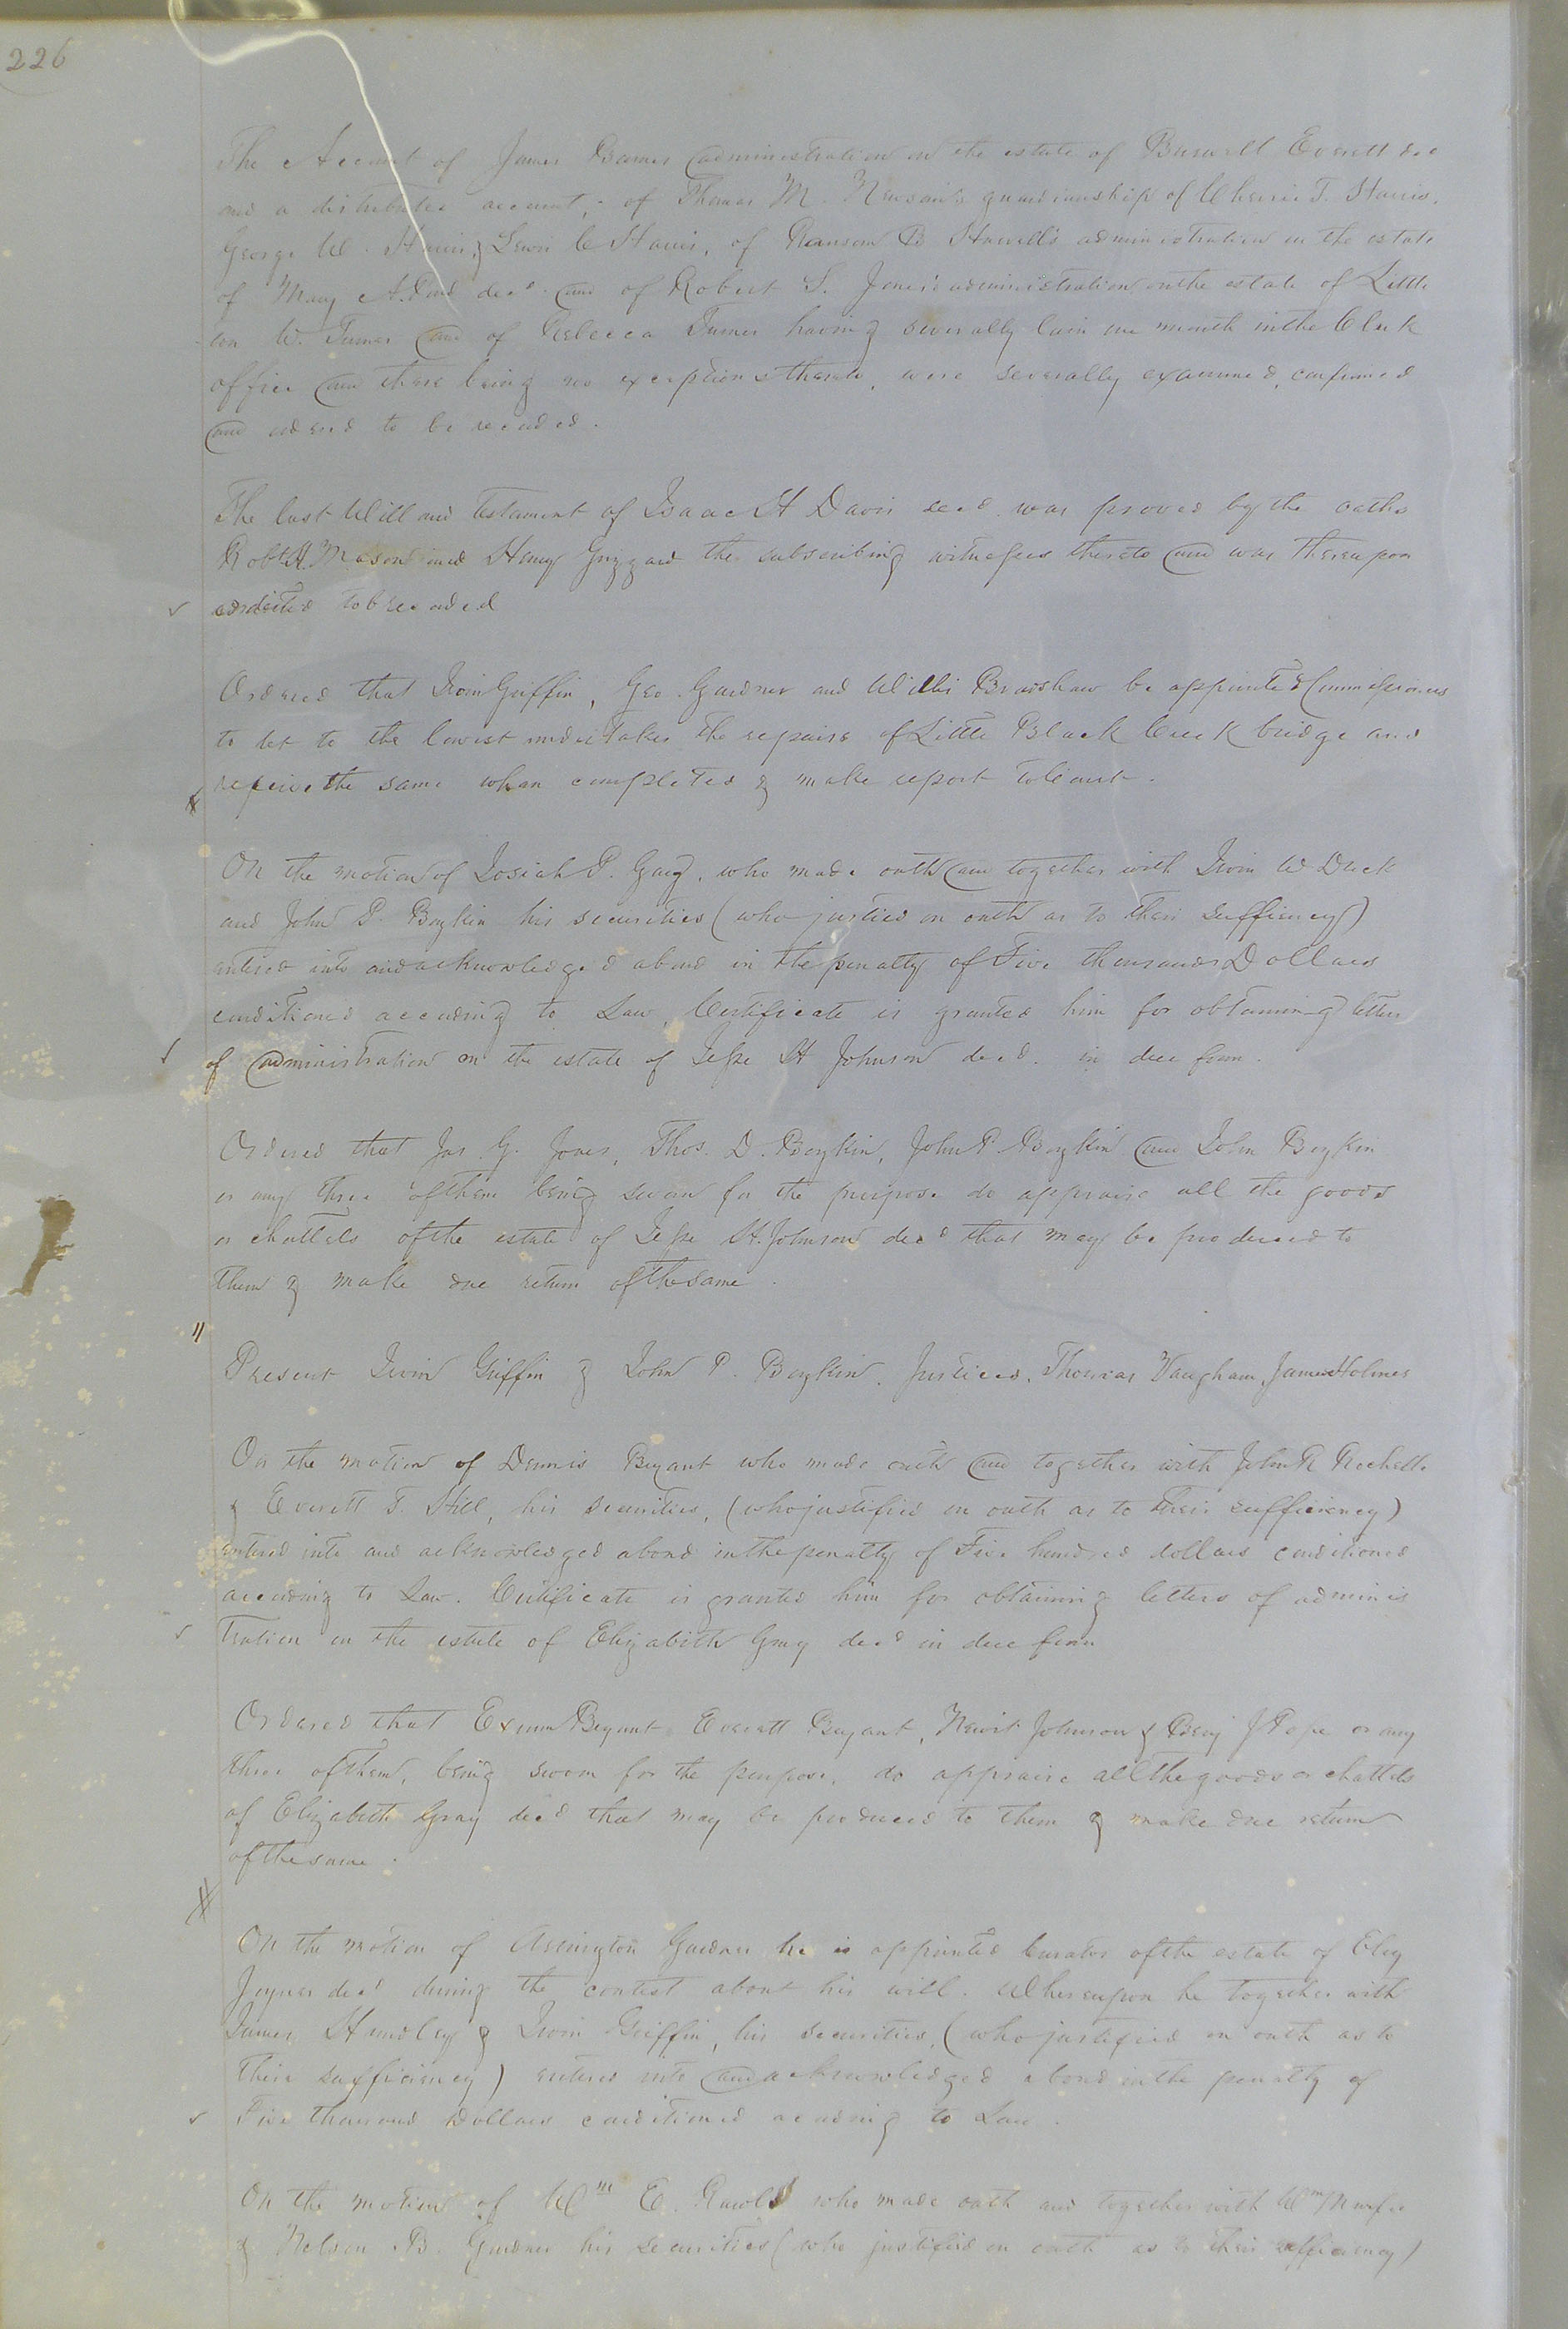 226
The Account of James Barnes administration on the estate of Burwell Everett dec
and a distributee account, of Thomas M. Newsom's guardianship of Cherrie T. Harris,
George W. Harris, & Lewis C Harris, of Ransom B Harrell's administration on the estate
of Mary A. decd. and of Robert S. Jones's administration on the estate of Little
ton W. Turner and of Rebecca Turner having severally lain one month in the Clerk
office and there being no exceptions thereto, were severally examined, confirmed
and ordered to be recorded.
The last Will and testament of Isaac H Davis decd. was proved by the oaths
Robt H. Mason and Henry Grizzard the subscribing witnesses thereto and was thereupon
to be recorded
Ordered that Irvin Griffin, Geo. Gardner and Willis Bradshaw be appointed Commissioners
to let to the lowest undertaker the repairs of Little Black Creek bridge and
receive the same when completed & make report to Court.
On the motion of Josiah P. Gray, who made oath and together with Irvin W Duck
and John P. Boykin his securities (who justied on oath as to their sufficiency)
entered into and acknowledged a bond in the penalty of Five thousand Dollars
conditioned according to Law, Certificate is granted him for obtaining letters
of administration on the estate of Jesse H Johnson decd. in due form.
Ordered that Jas. G. Jones, Thos. D. Boykin, John P. Boykin and John Boykin
or any three of them being sworn for the purpose do appraise all the goods
or chattels of the estate of Jesse H. Johnson decd that may be produced to
them & make due return of the same.
Present Irvin Griffin & John P. Boykin, Justices, Thomas Vaugham, James Holmes
On the motion of Dennis Bryant who made oath and together with John R Rochelle
& Everett T. Hill, his securities, (who justified on oath as to their sufficiency)
entered into and acknowledged a bond in the penalty of Five hundred dollars conditioned
according to Law. Certificate is granted him for obtaining letters of adminis
tration on the estate of Elizabeth Gray decd in due form
Ordered that Exum Bryant Everett Bryant, Newit Johnson & Benj J Pope or any
three of them, being sworn for the purpose, do appraise all the goods or chattels
of Elizabeth Gray decd that may be produced to them & make due return
of the same.
On the motion of Arrington Gardner he is appointed Curator of the estate of Eley
Joyner decd during the contest about his will. Whereupon he together with
James Hundley & Irvin Griffin, his securities, (who justified on oath as to
their sufficiency) entered into and acknowledged a bond in the penalty of
Five thousand Dollars conditioned according to Law.
On the motion of Wm E. who made oath and together with Wm Murfee
& Nelson B. Gardner his securities (who justified on oath as to their sufficiency)